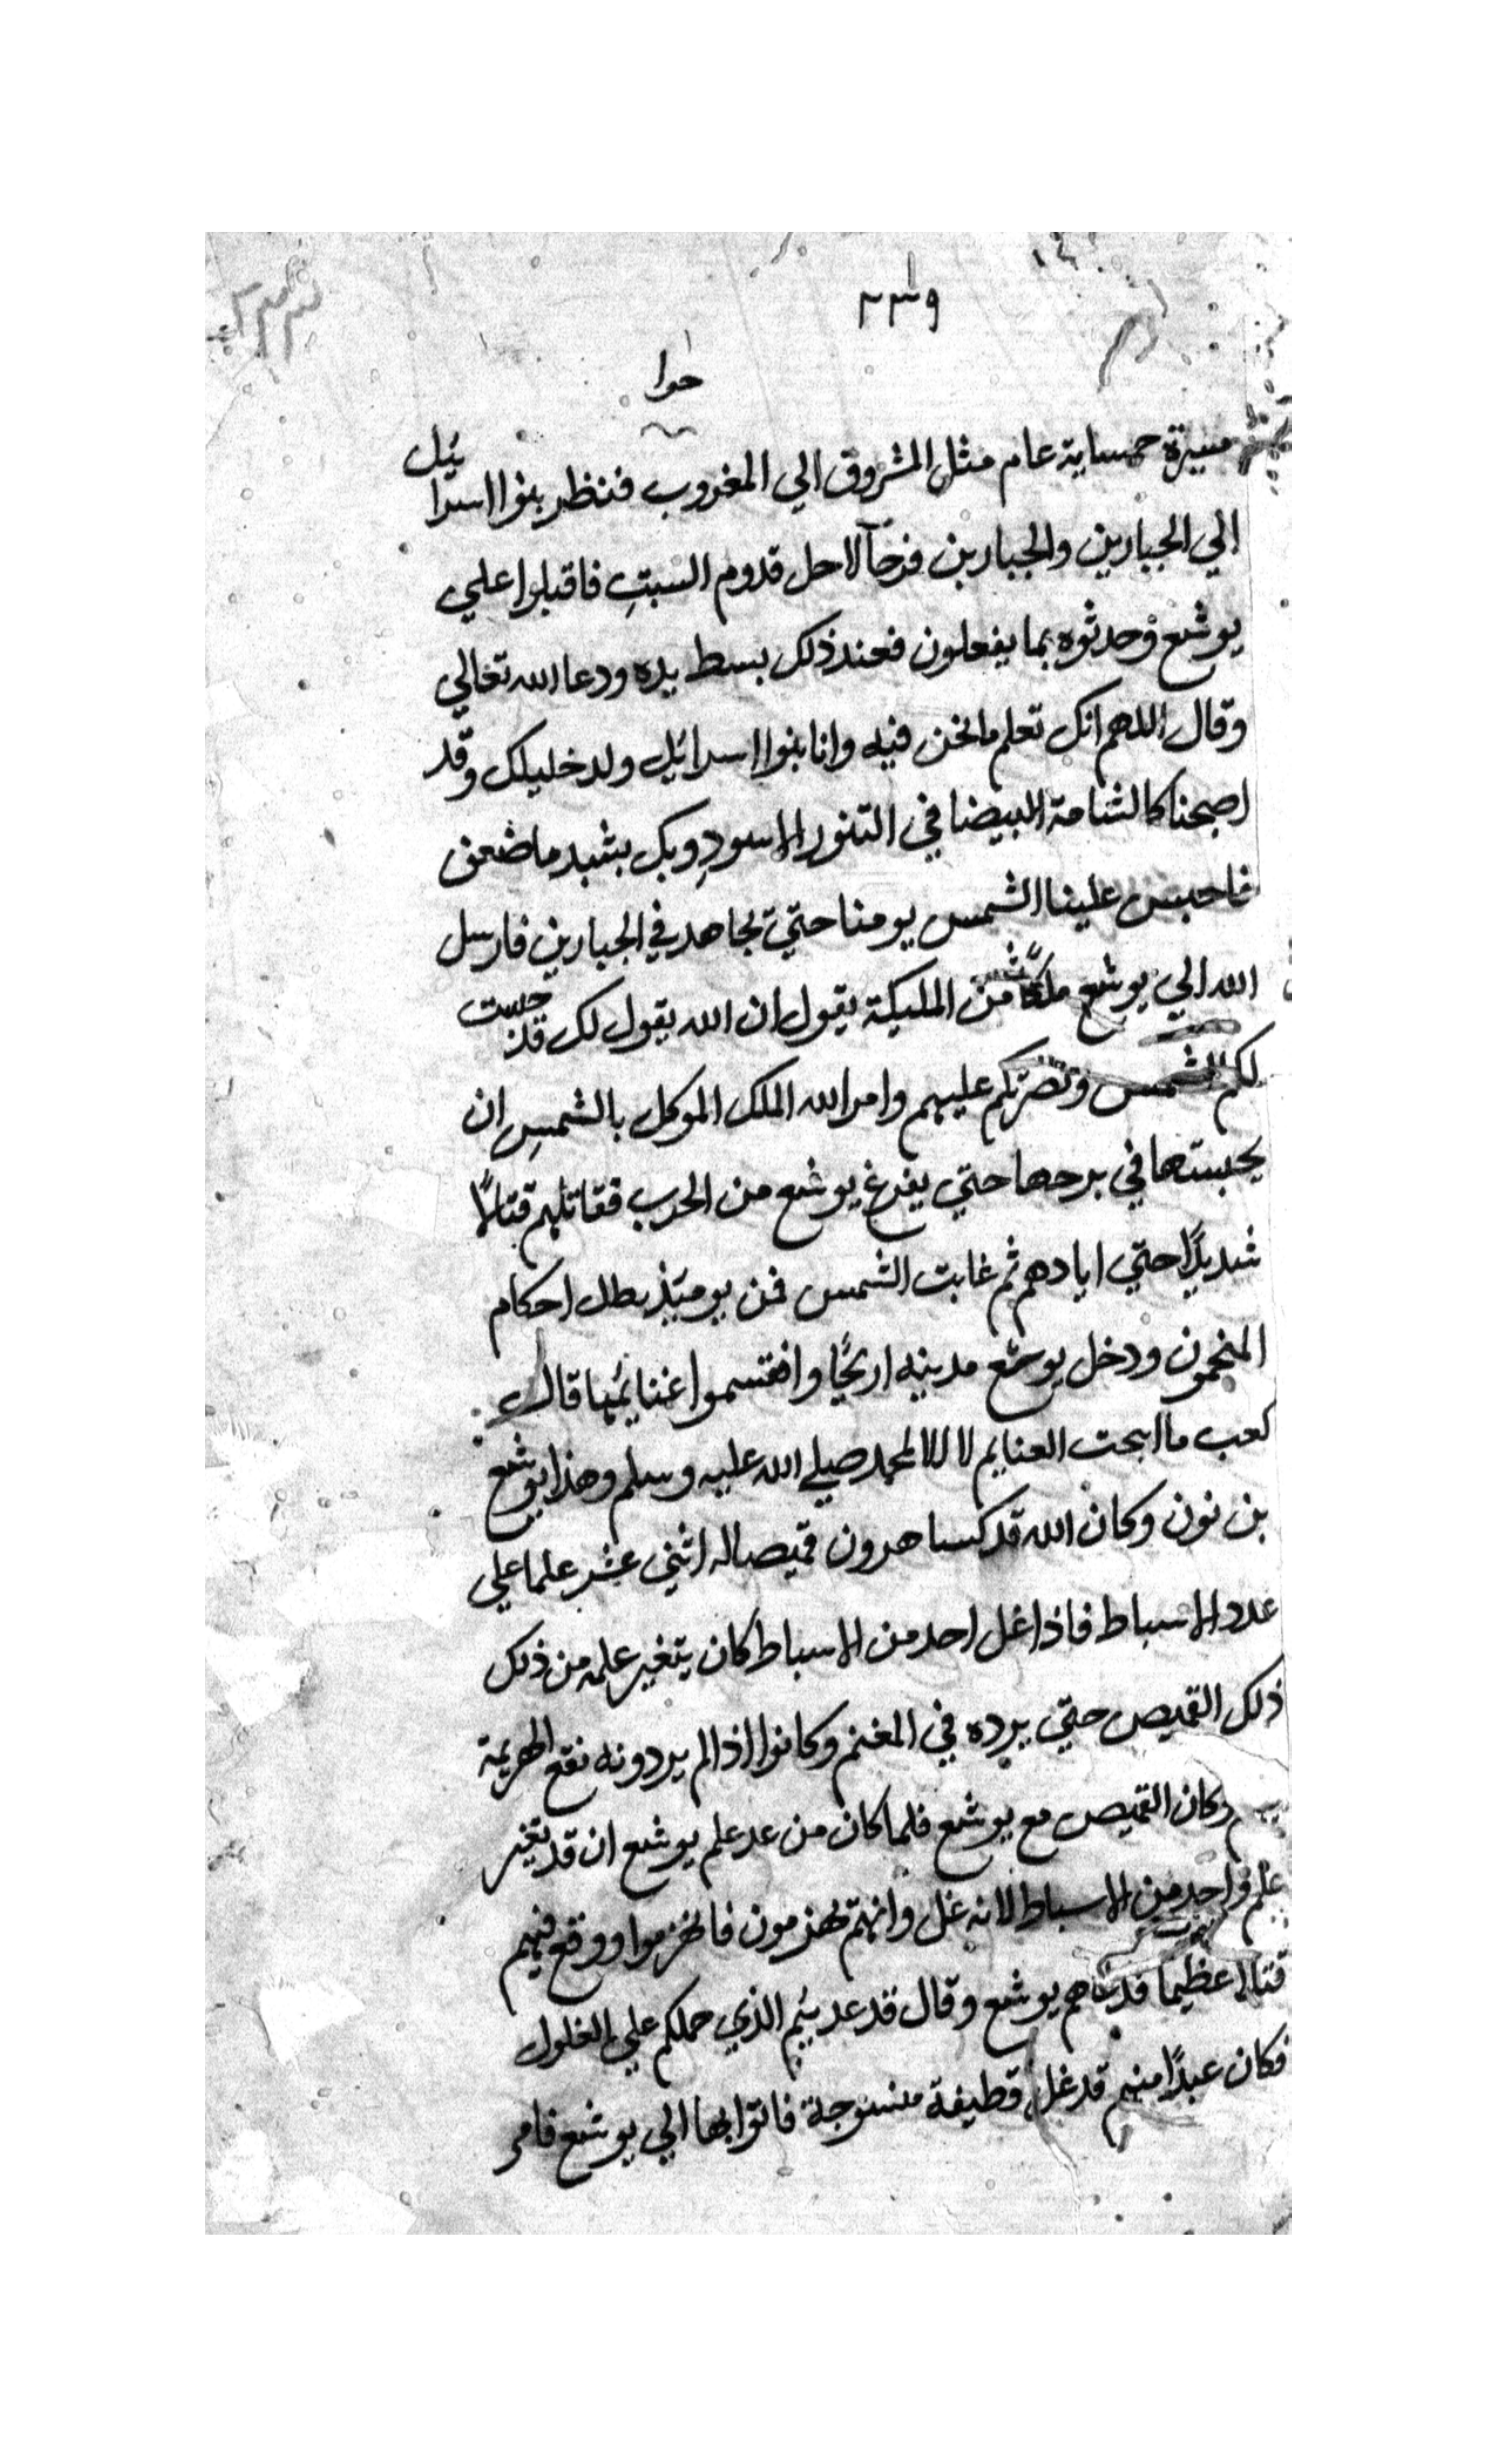 ٢٣٩
حوا
مسيرة خمسماية عام مثل الشروق الي المغروب فنظر بنوا اسرائيل
الي الجبارين والجبارين فرحآ لاجل قدوم السبتِ فاقبلوا علي
يوشع وحدثوه بما يفعلون فعند ذلك بسط يده ودعا الله تعالي
وقال اللهم انك تعلم ما نحن فيه وانا بنوا اسرائيل ولد خليلك وقد
اصبحنا كالشامة البيضا في التنور الاسودِ وبك يشيد ما ضعف
فاحبس علينا الشمس يومنا حتي نجاهد في الجبارين فارسل
الله الي يوشع ملكًا من المليكة يقول ان الله يقول لك قد حبست
لكم الشمس ونصرتكم عليهم وامر الله الملك الموكل بالشمسِ ان
يحبسها في برجها حتي يفرغ يوشع من الحرب فقاتلهم قتالًا
شديدًا حتي ابادهم ثم غابت الشمس فمن يوميذ بطل احكام
المنجمون ودخل يوشع مدينه اريحًا واقتسموا غنايمها قال
كعب ما ابيحت الغنايم الا لمحمد صلي الله عليه وسلم وهذا يوشع
بن نون وكان الله قد كسا هرون قميصا له اثني عشر علما علي
عدد الاسباط فاذا غل احد من الاسباط كان يتغير علمه من ذلك
ذلك القميص حتي يرده في المغنم وكانوا اذا لم يردونه تقع الهزيمة
وكان القميص مع يوشع فلما كان من غد علم يوشع ان قد تغير
علم واحد من الاسباط لانه غل وانهم يهزمون فانهزموا ووقع فيهم
قتالا عظيما يوشع وقال قد الذي حملكم علي الغلول
فكان عبدًا منهم قد غل قطيفة منسوجة فاتوا بها الي يوشع فامر